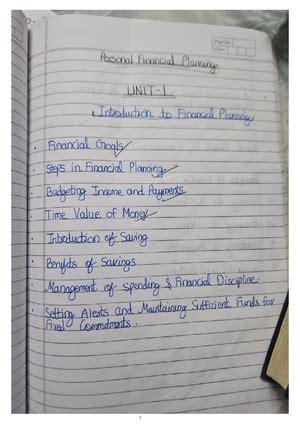 Personal Financial Planning
UNIT-1
Introduction to Financial Planning
Financial Goals
Steps in Financial Planning
Budgeting Income and Payments
Time Value of Money
Introduction of Saving
Benefits of Savings
Management of Spending & Financial Discipline.
Setting Alerts and Maintaining Sufficient Funds for
Fixed Commitments.
1